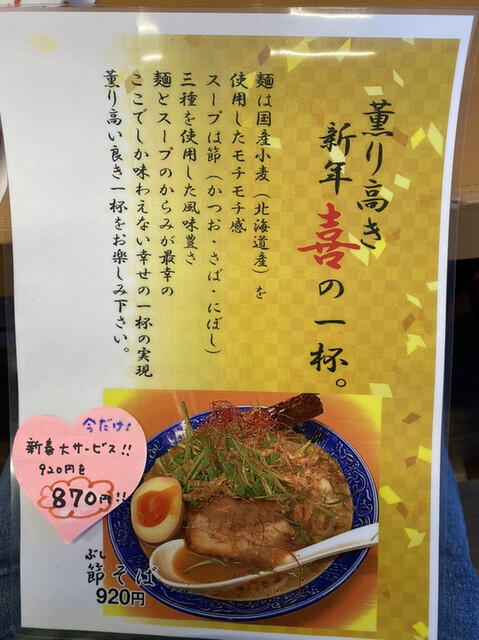 薫り高き
新年喜の一杯。
麺は国産小麦(北海道産)を
使用したモチモチ感
スープは節(かつお・さば・にぼし)
三種を使用した風味豊さ
麺とスープのからみが最幸の
ここでしか味わえない幸せの一杯の実現
薫り高い良き一杯をお楽しみ下さい。
今だけ!
新春大サービス!!
920円を
870円!!
ぶし
節そば
920円